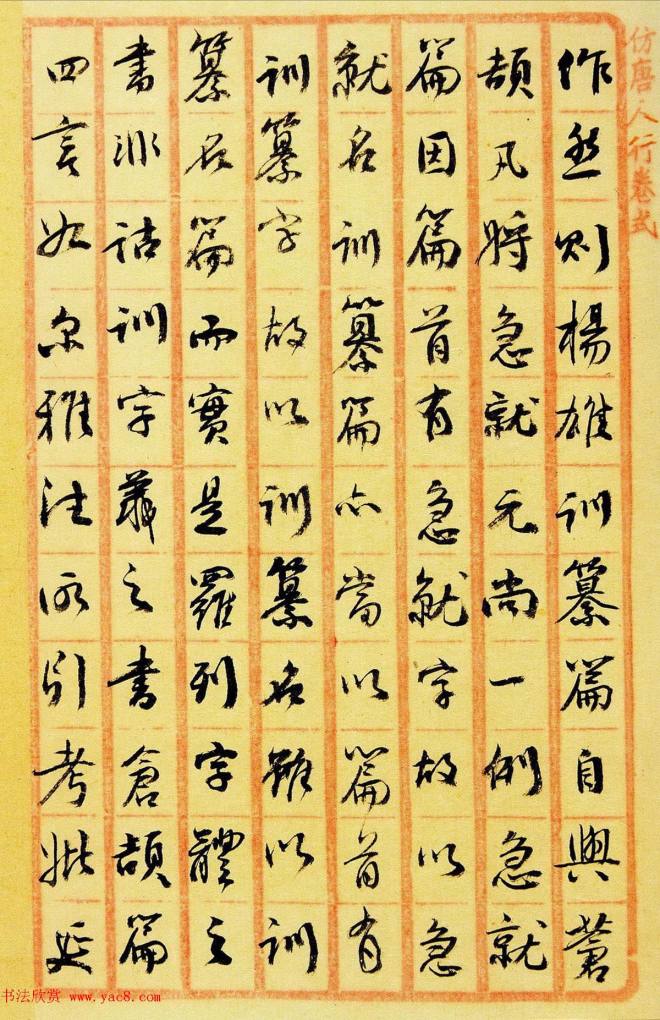 仿唐人行卷式
作然則楊雄訓纂篇自與蒼
頡凡將急就元尚一例急就
篇因篇首有急就字故以急
就名訓纂篇亦當以篇首有
訓纂字故以訓纂名雖以訓
纂名篇而實是羅列字體之
書非詁訓字義之書倉頡篇
四言如尔雅注所引考妣延
书法欣赏 www.yac8.com